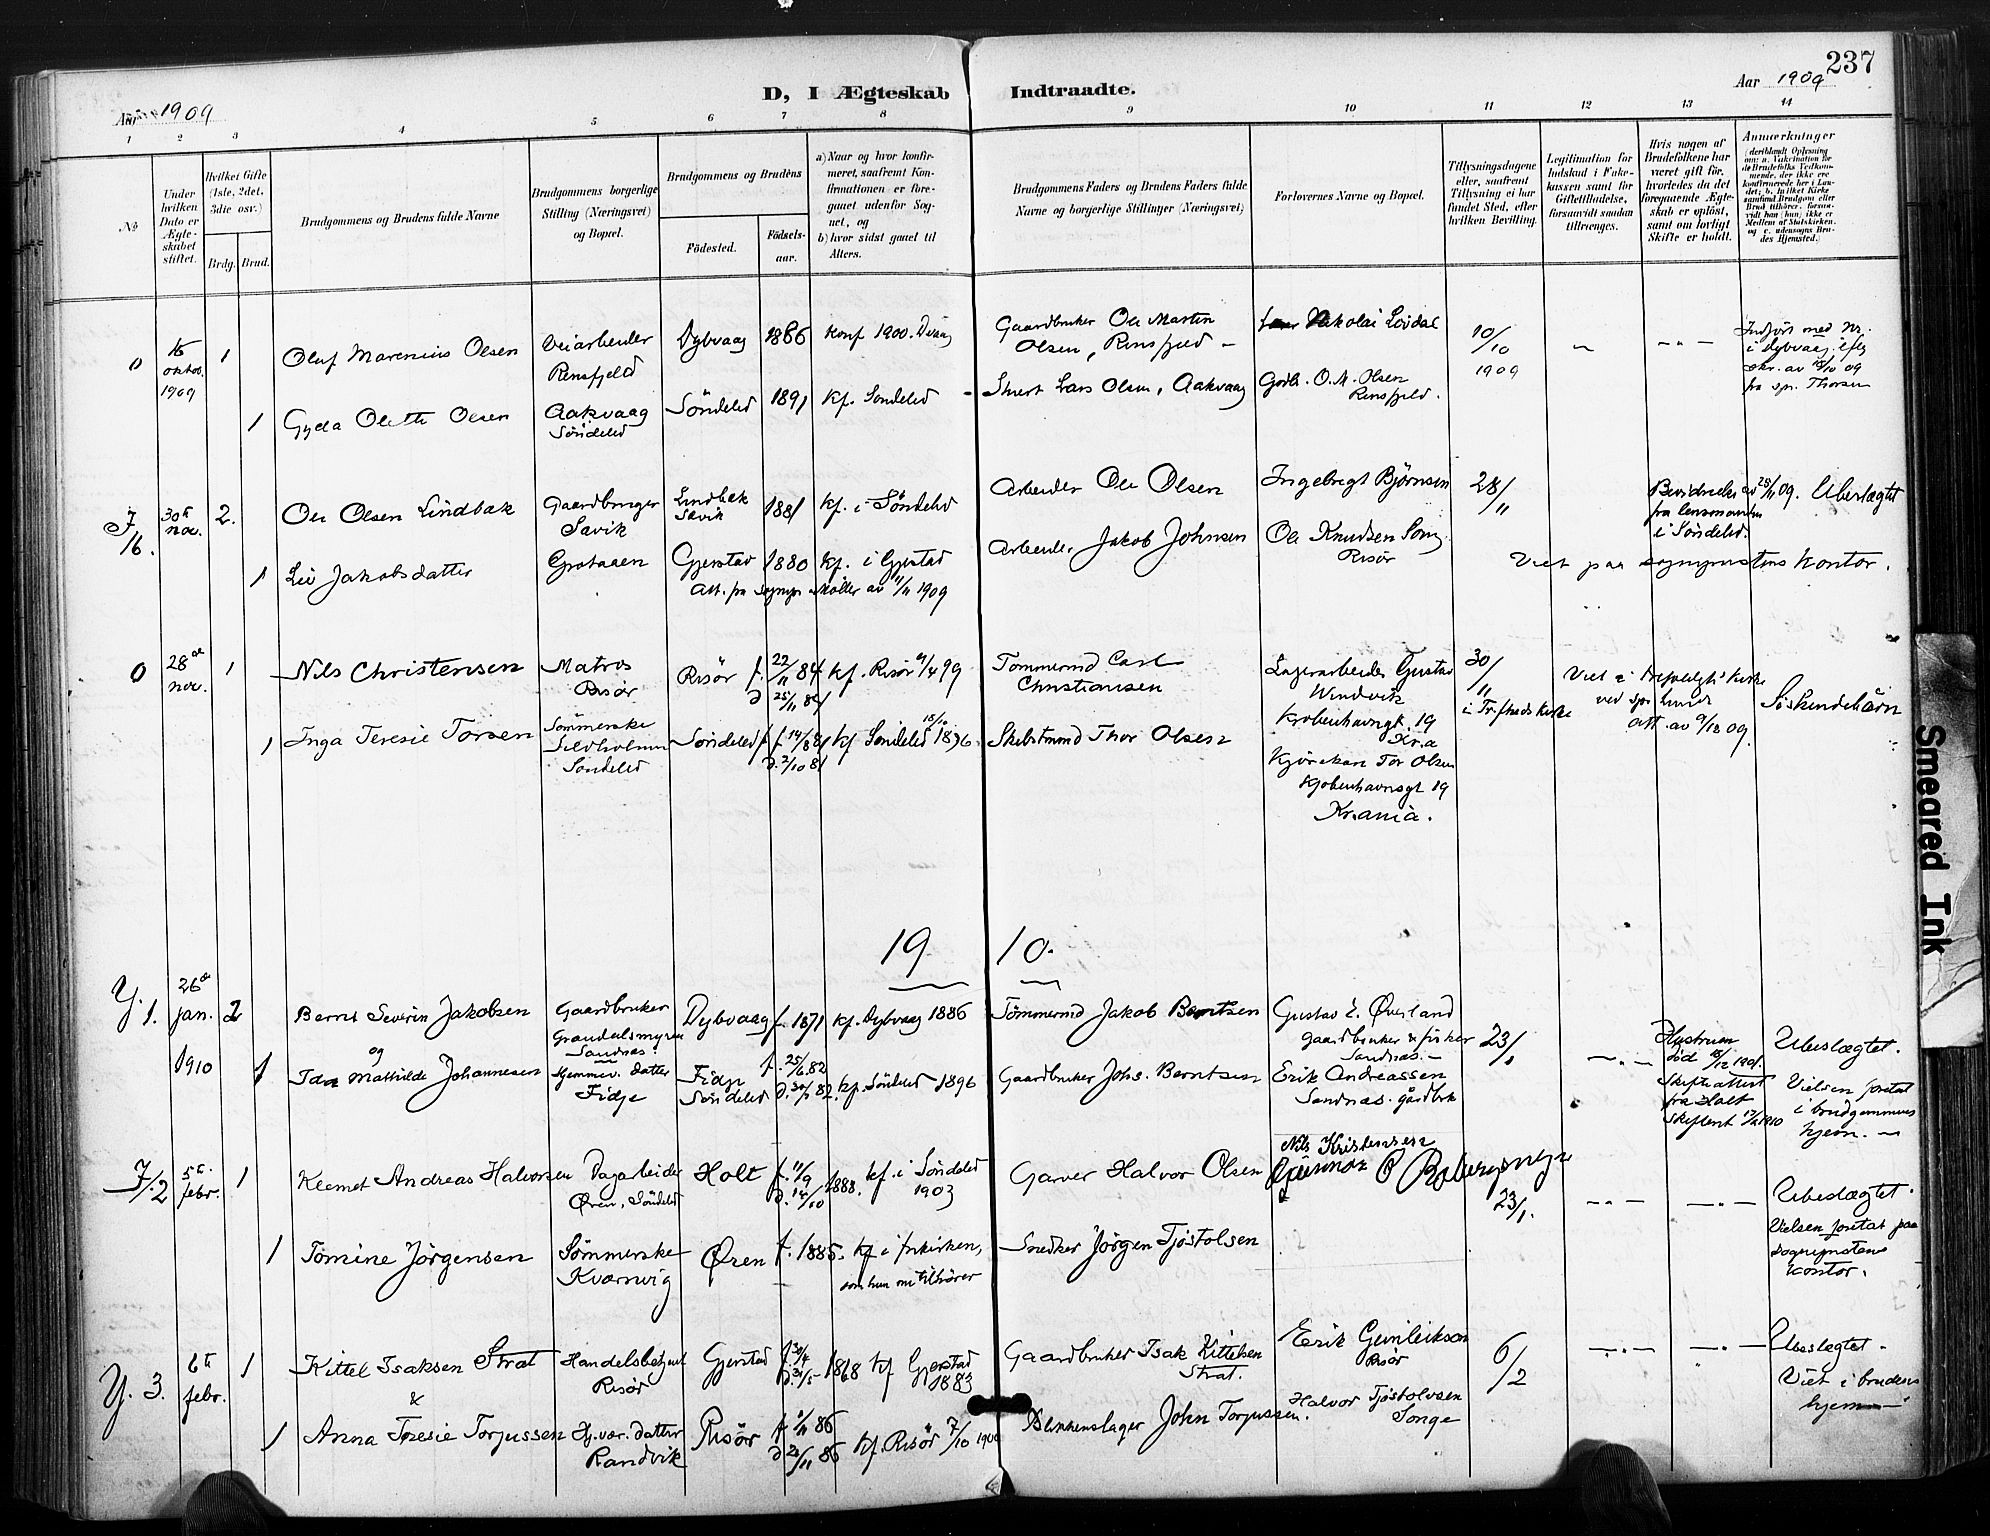 237
Aar 1909
D, I Ægteskab Indtraadte.
Aar 1909
1 2 3 4 5 6 7 8 9 10 11 12 13 14
No
Under hvilken Dato er Ægteskabet stiftet.
Hvilket Gifte (1ste, 2det, 3die osv.)
Brdg. Brud.
Brudgommens og Brudens fulde Navne
Brudgommens borgerlige Stilling (Næringsvei) og Bopæl.
Brudgommens og Brudens
Fødested.
Fødselsaar.
a) Naar og hvor konfirmeret, saafremt Konfirmationen er foregaaet udenfor Sognet, og
b) hvor sidst gaaet til Alters.
Brudgommens Faders og Brudens Faders fulde Navne og borgerlige Stillinger (Næringsvei)
Forlovernes Navne og Bopæl.
Tillysningsdagene eller, saafremt Tillysning ei har fundet Sted, efter hvilken Bevilling.
Legitimation for Indskud i Enkekassen samt for Giftetilladelse, forsaavidt saadan tiltrænges.
Hvis nogen af Brudefolkene har været gift før, hvorledes da det foregaaende Ægteskab er opløst, samt om lovligt Skifte er holdt.
Anmærkninger
0
16 oktob. 1909
1
Oluf Marenius Olsen
Veiarbeider
Rensfjeld
Dybvaag
1886
Konf 1900.
Gaardbruker Ole Martin
Olsen, Rensfjeld
Nikolai
10/10
1909
Indført med Nr.
i Dybvaag, efter
skr. av 18/10 09
fra spr. Thorsen
1
Gyda Olette Olsen
Aakvaag
Søndeled
Søndeled
1891
Kf. Søndeled
Lars Olsen, Aakvaag
Godb. O. M. Olsen
Rensfjeld.
7/6.
30te nov.
2.
Ole Olsen Lindbæk
Gaardbruger
Savik
Lindbæk
Savik
1881
Kf. i Søndeled
Arbeider Ole Olsen
Ingebregt Bjørnsen
28/11
fra lensmanden
i Søndeled.
25/11 09.
Ubeslægtet
1
Liv Jakobsdatter
Gjerstad
1880
Kf. i Gjerstad
Att. fra sognepr. Møller av 11/11 1909
Arbeider Jakob Johnsen
Ole Knudsen
Risør
Viet paa sogneprestens kontor.
0
28de nov.
1
Nils Christensen
Matros
Risør
Risør
f. 22/11 84
d 25/11 84
Kf. Risør 9/4 99
Tømmermd Carl
Christiansen
Lagerarbeider Gustav
Kjøbenhavngt 19
Kr.a
30/11
Søskendebarn
1
Inga Teresie Torsen
Sømmerske
Søndeled
Søndeled
f. 14/8 81
d. 2/10 81
Kf Søndeled 1896
Skibstmmd Thor Olsen
Tor Olsen
Kjøbenhavnsgt 19
Kr.ania.
att. av 9/12 09.
1910.
Y. 1.
26de jan. 1910
2
Bernt Severin Jakobsen
og
Gaardbruker
Grandalsmyren
Sandnæs.
Dybvaag
f. 1871
Kf. Dybvaag 1886
Tømmermd Jakob Berntsen
Gustav E. Øverland
gaardbruker & fisker
Sandnæs.
23/1
Hustruen
død 18/12 1901.
Skifteattest
fra Holt
Ubeslægtet.
1
Ida Mathilde Johannesen
hjemmev. datter
Fidje
Fidje
Søndeled
f. 25/6. 82
Kf. Søndeled 1896
Gaardbruker Johs. Berntsen
Erik Andreassen
Sandnæs. gårdbrk
Vielsen foretat
i brudgommens
hjem.
7/2
5te febr.
1
Klemet Andreas Halvorsen
Dagarbeider
Øren, Søndeled
Holt
f. 11/9
d. 14/10
1888.
kf. i Søndeled
1903
Garver Halvor Olsen
Nils Kristensen
23/1.
Ubeslægtet.
Vielsen foretat paa
sogneprestens
kontor.
1
Tomine Jørgensen
Sømmerske
Kværnvig
Øren
f. 1885.
Kf i frikirken,
som hun nu tilhører
Snedker Jørgen Tjøstolsen
Y. 3.
6te febr.
1
Kittel Isaksen Strat
&
Handelsbetjent
Risør
Gjerstad
f. 30/4
d. 31/5
1868
Kf Gjerstad
1883
Gaardbruker Isak Kittelsen
Strat.
Erik
Risør
6/2
Ubeslægtet.
Viet i brudens
hjem
1
Anna Teresie Torjussen
Hj. vær. datter
Randvik
Risør
f 1/11 86
d 28/11 86
Kf. Risør 7/10 1900
Blikkenslager John Torjussen.
Halvor Tjøstolvsen
Songe
Smeared Ink